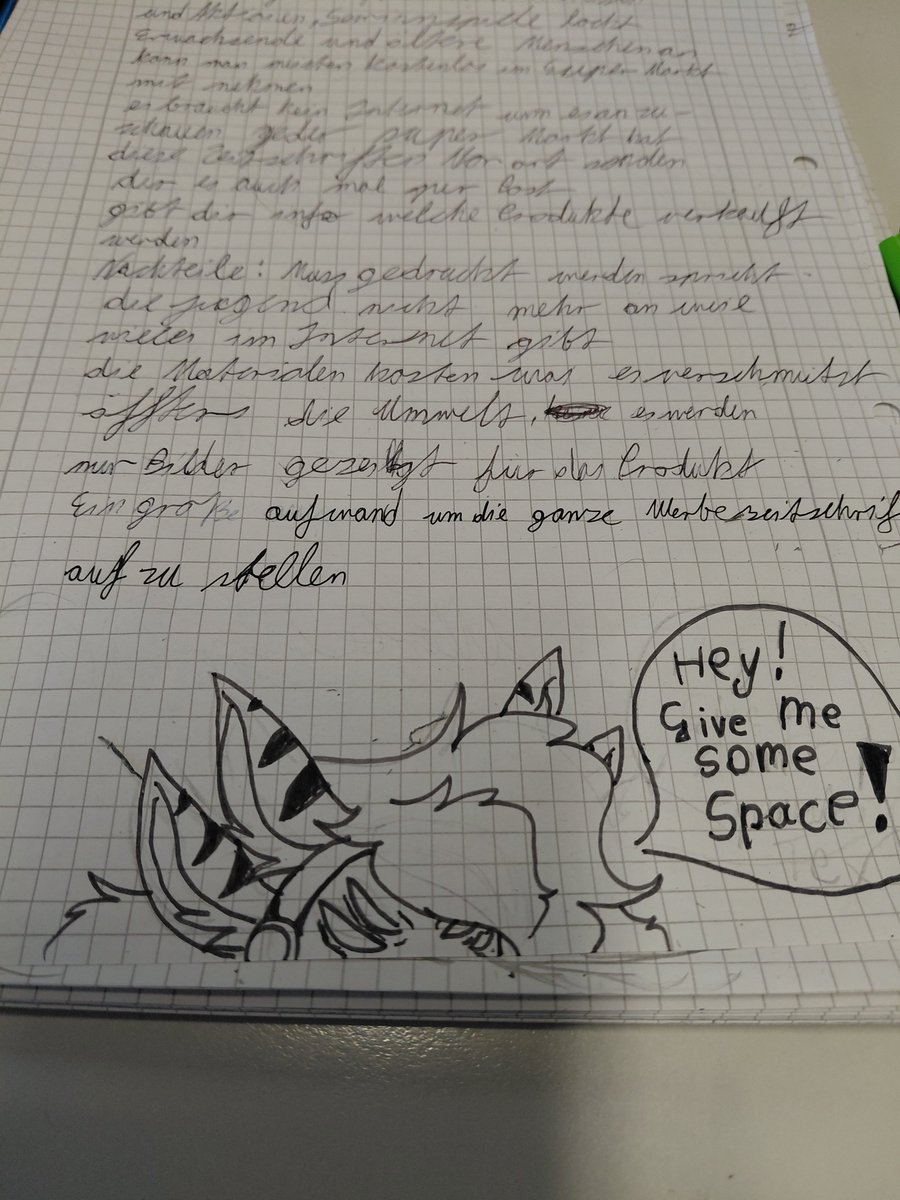 und Aktionen, Gewinnspiele lockt
Erwachsende und ältere Menschen an
kann man meisten kostenlos im Super Markt
mit nehmen
es braucht kein Internet um es an zu-
schauen jeder super Markt hat
diese Zeitschriften Vor ort
der es auch mal per Post
gibt dir info welche Produkte verkauft
werden
Nachteile: Muss gedruckt werden spricht
die jugend nicht mehr an weil
vieles im Internet gibt
die Materialen kosten was es verschmutzt
öffters die Umwelt, es werden
nur Bilder gezeigt für das Produkt
Ein große aufwand um die ganze Werbezeitschrif
auf zu stellen
Hey!
Give me
some
Space!